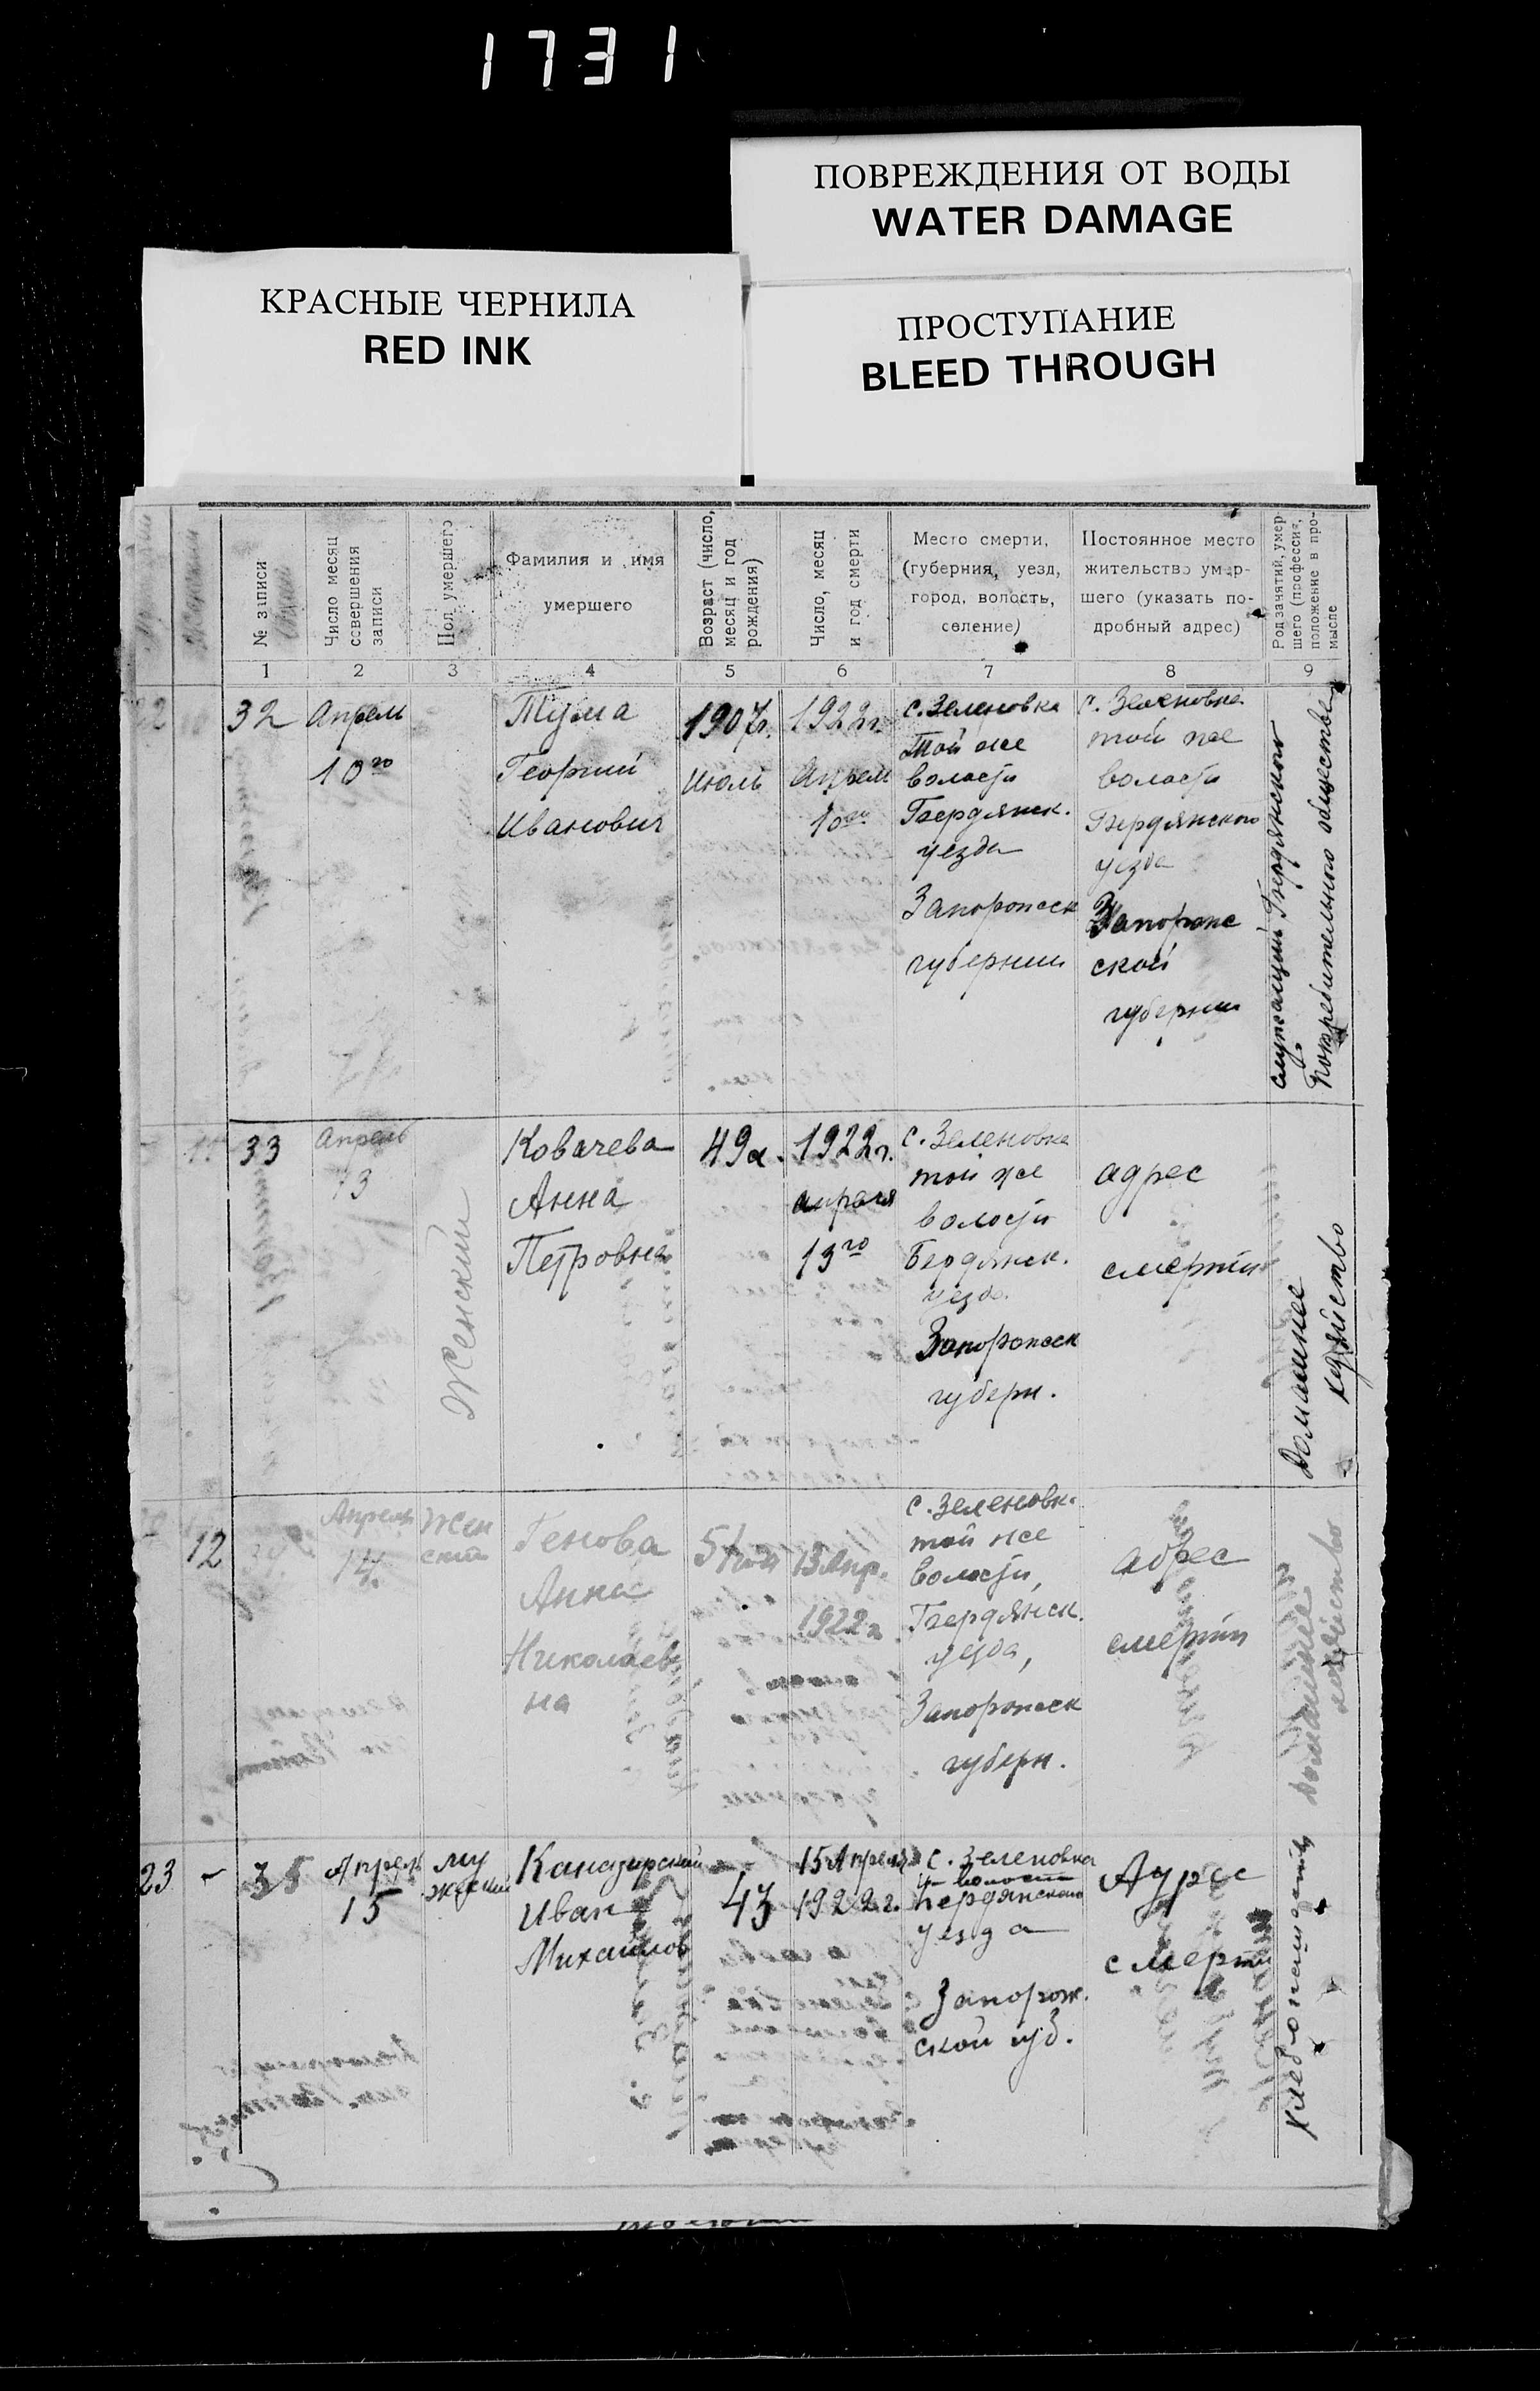 1731
ПОВРЕЖДЕНИЯ ОТ ВОДЫ
WATER DAMAGE
КРАСНЫЕ ЧЕРНИЛА
RED INK
ПРОСТУПАНИЕ
BLEED THROUGH
№ записи
Число месяц
совершения
записи
Пол умершего
Фамилия и имя
умершего
Возраст (число,
месяц и год
рождения)
Число, месяц
и год смерти
Место смерти,
(губерния, уезд,
город, волость,
селение)
Постоянное место
жительство умер-
шего (указать по-
дробный адрес)
Род занятий, умер-
шего (профессия,
положение в про-
мысле
1 2 3 4 5 6 7 8 9
22
32
Апрель
10го
Тума
Георгий
Иванович
1907г.
Июль
1922г.
Апрель
10го
с. Зеленовка
той же
волости
Бердянск.
уезда
Запорожск
губернии
с. Зеленовка
той же
волости
Бердянского
уезда
Запорож
ской
губернии
служащий Бердянского
потребительного общества
11
33
Апрель
13
Женский
Ковачева
Анна
Петровна
49л.
1922г.
апреля
13го
с. Зеленовка
той же
волости
Бердянск.
уезда
Запорожск
губерн.
адрес
смерти
Домашнее
хозяйство
12
34
Апрель
14
Жен
ский
Генова
Анна
Николаев
на
13 Апр.
1922г.
с. Зеленовк.
той же
волости,
Бердянск.
уезда,
Запорожск
губерн.
адрес
смерти
домашнее
хозяйство
23
-
35
Апрель
15
му
жский
Иван
Михайлов
43
15 Апреля
1922г.
с. Зеленовка
волости
Бердянского
уезда
Запорож.
ской губ.
Адрес
смерти
хлебопашество